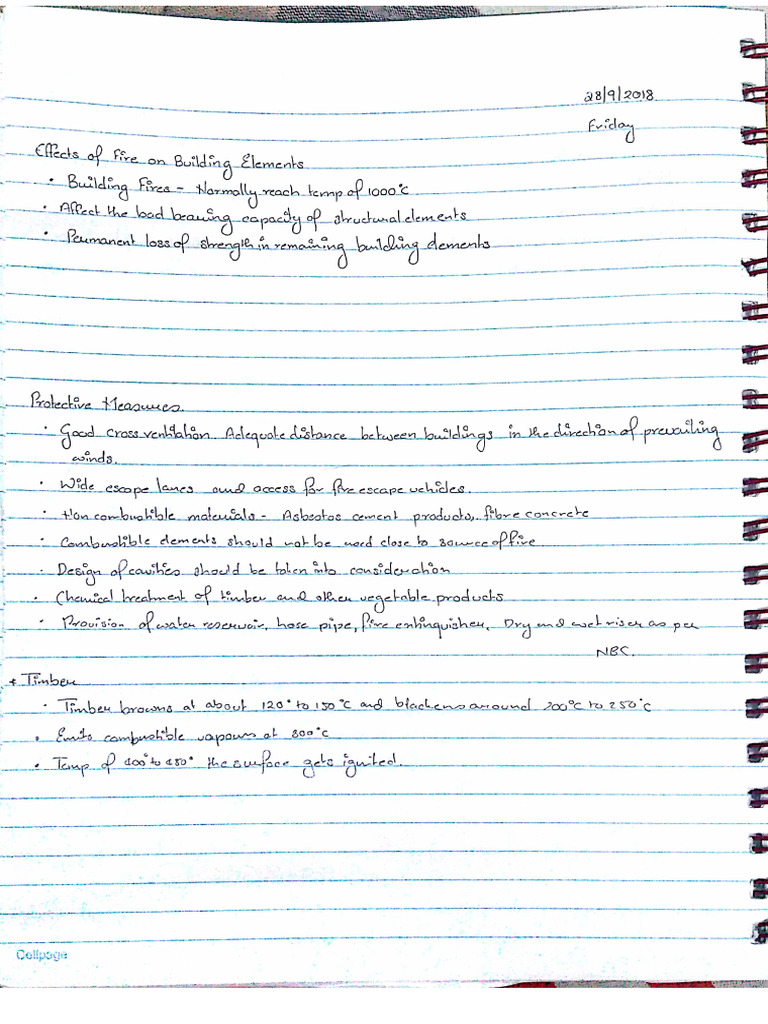 28/9/2018
Friday
Effects of Fire on Building Elements
· Building Fires - Normally reach temp of 1000°c
· Affect the load bearing capacity of structural elements
· Permanent loss of strength in remaining building elements
Protective Measures.
· Good cross ventilation. Adequate distance between buildings in the direction of prevailing
winds.
· Wide escape lanes and access for fire escape vehicles.
· Non combustible materials - Asbestos cement products, fibre concrete
· Combustible elements should not be used close to source of fire
· Design of cavities should be taken into consideration
· Chemical treatment of timber and other vegetable products
· Provision of water reservoir, hose pipe, fire extinguisher, Dry and wet riser as per
NBC.
* Timber
· Timber browns at about 120° to 150°C and blackens around 200°C to 250°C
· Emits combustible vapours at 300°C
· Temp of 400° to 450° the surface gets ignited.
Cellpage